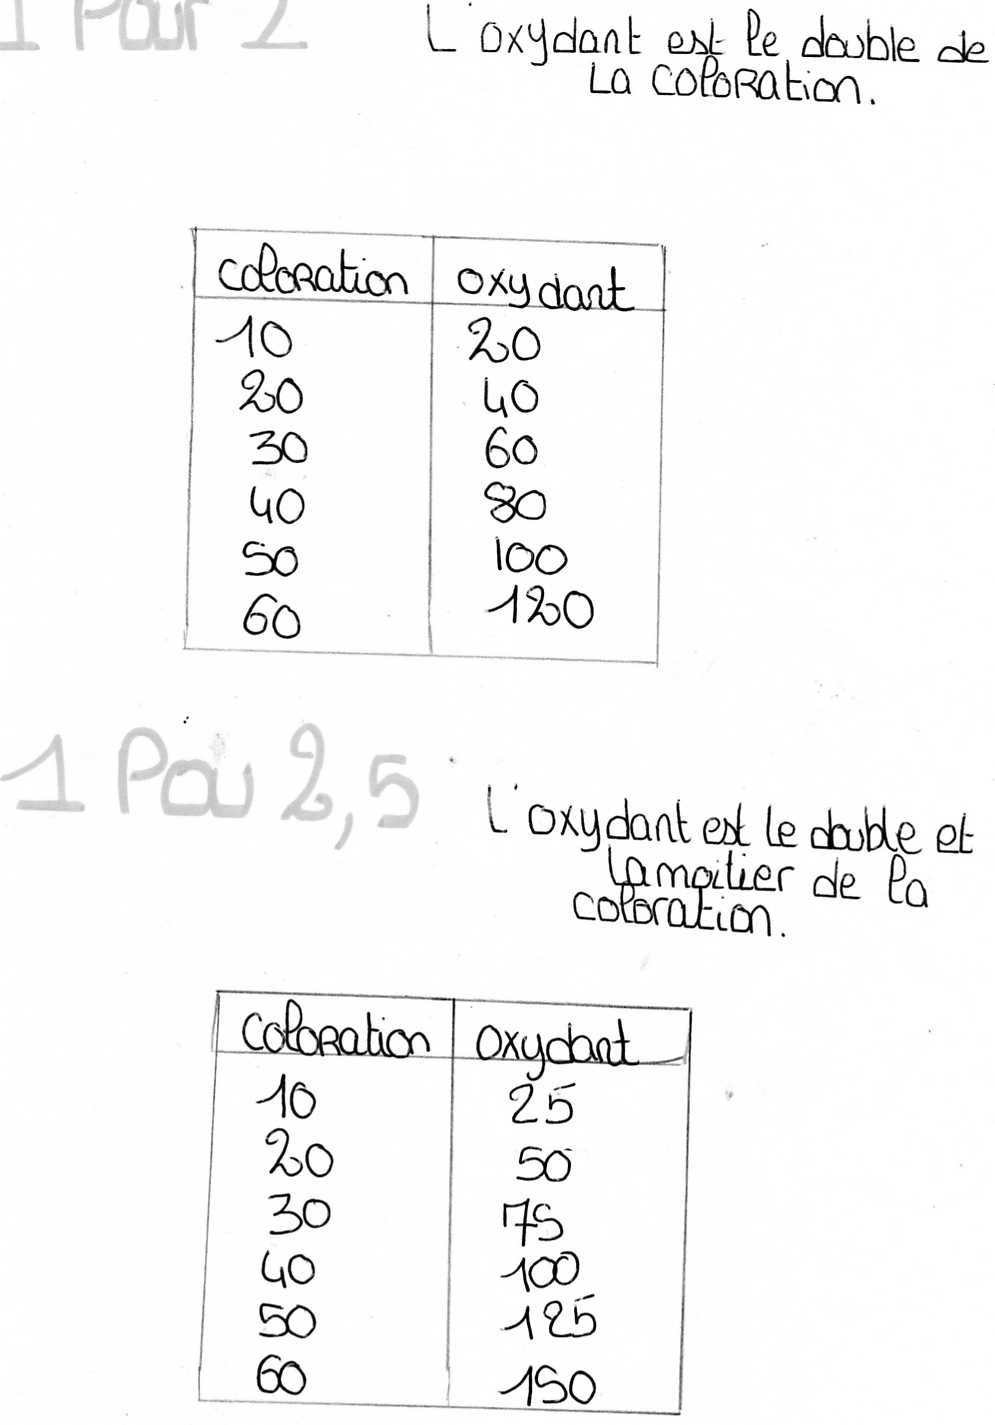 1 Pour 2
L'oxydant est le double de
La coloration.
coloration oxydant
10 20
20 40
30 60
40 80
50 100
60 120
1 Pou 2,5
L'oxydant est le double et
la moitier de la
coloration.
coloration oxydant
10 25
20 50
30 75
40 100
50 125
60 150